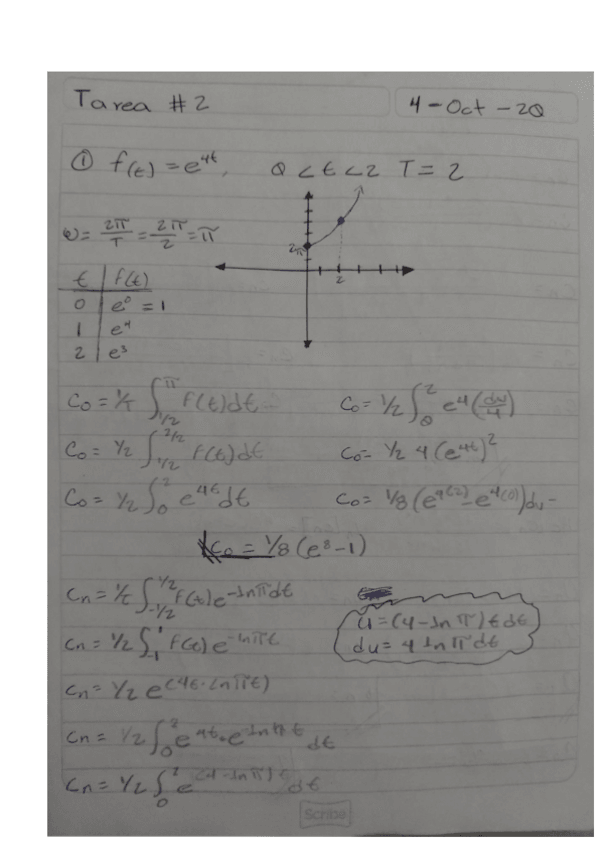 Tarea #2 4-Oct-20
① f(t) = e^4t, 0 < t < 2 T = 2
ω = 2π/T = 2π/2 = π
2π
2
t | f(t)
0 | e^0 = 1
1 | e^4
2 | e^3
C0 = 1/T ∫ f(t)dt
C0 = 1/2 ∫ f(t)dt
C0 = 1/2 ∫_0^2 e^4t dt
C0 = 1/2 ∫_0^2 e^4 (du/4)
C0 = 1/2 4 (e^4t)^2
C0 = 1/8 (e^4(2) - e^4(0))du
C0 = 1/8 (e^8 - 1)
Cn = 1/t ∫_-1/2^1/2 f(t) e^-Jnπdt
Cn = 1/2 ∫_-1^1 f(t) e^-Jnπt
Cn = 1/2 e^(4t-Jnπt)
Cn = 1/2 ∫_0^2 e^4t · e^-Jnπt dt
Cn = 1/2 ∫_0^2 e^(4-Jnπ)t dt
u = (4-Jnπ)t dt
du = 4 Jnπ dt
Scribe